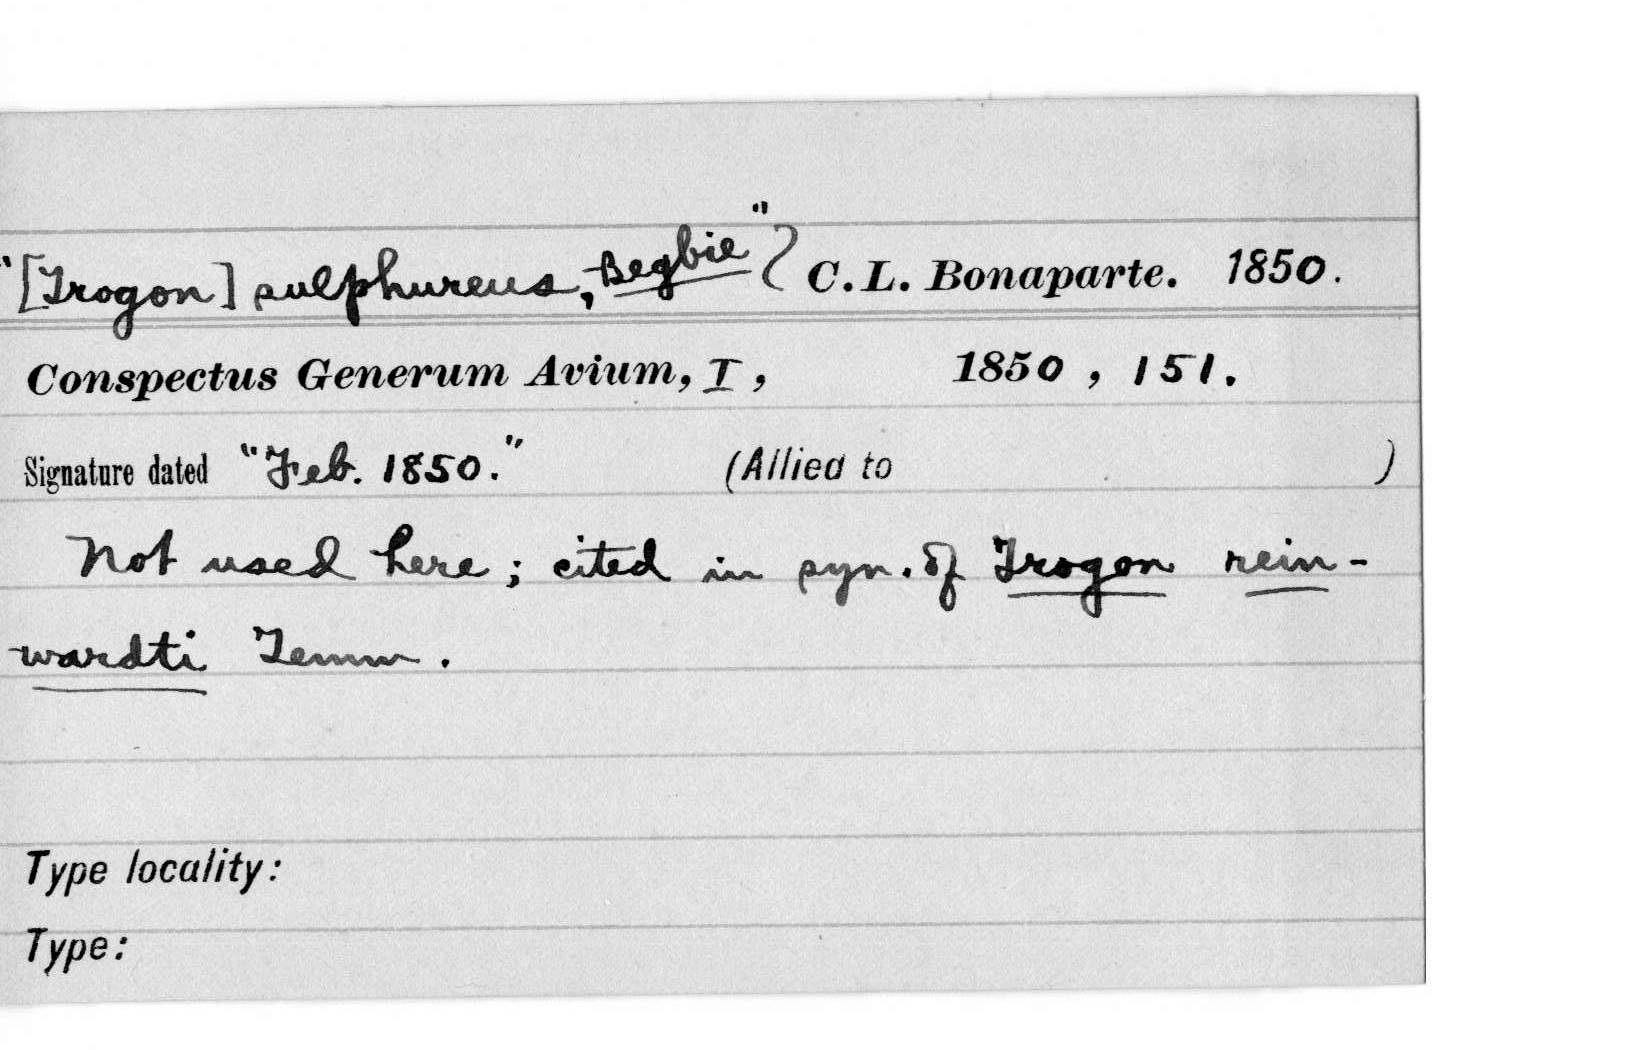 "[Trogon] sulphureus, Begbie" C.L. Bonaparte. 1850.
Conspectus Generum Avium, I, 1850, 151.
Signature dated "Feb. 1850." (Allied to )
Not used here; cited in syn. of Trogon rein-
wardti Temm.
Type locality:
Type: